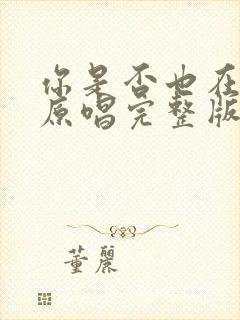 你是否也在
原唱完整版
董丽